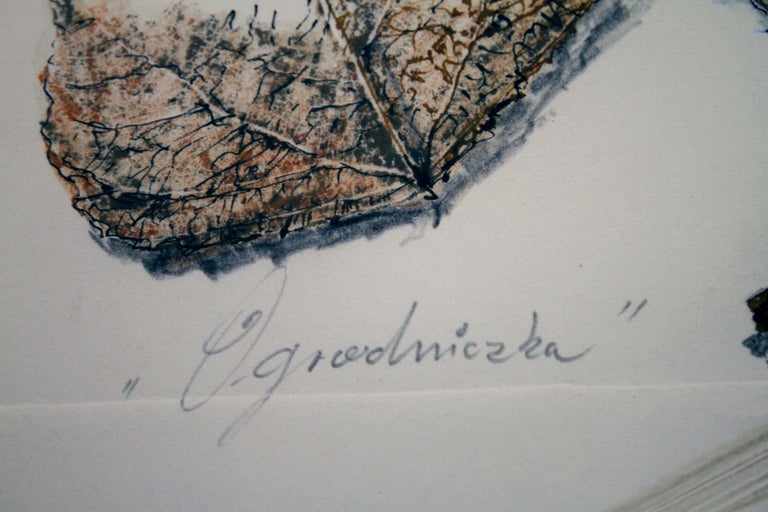 „Ogrodniczka"